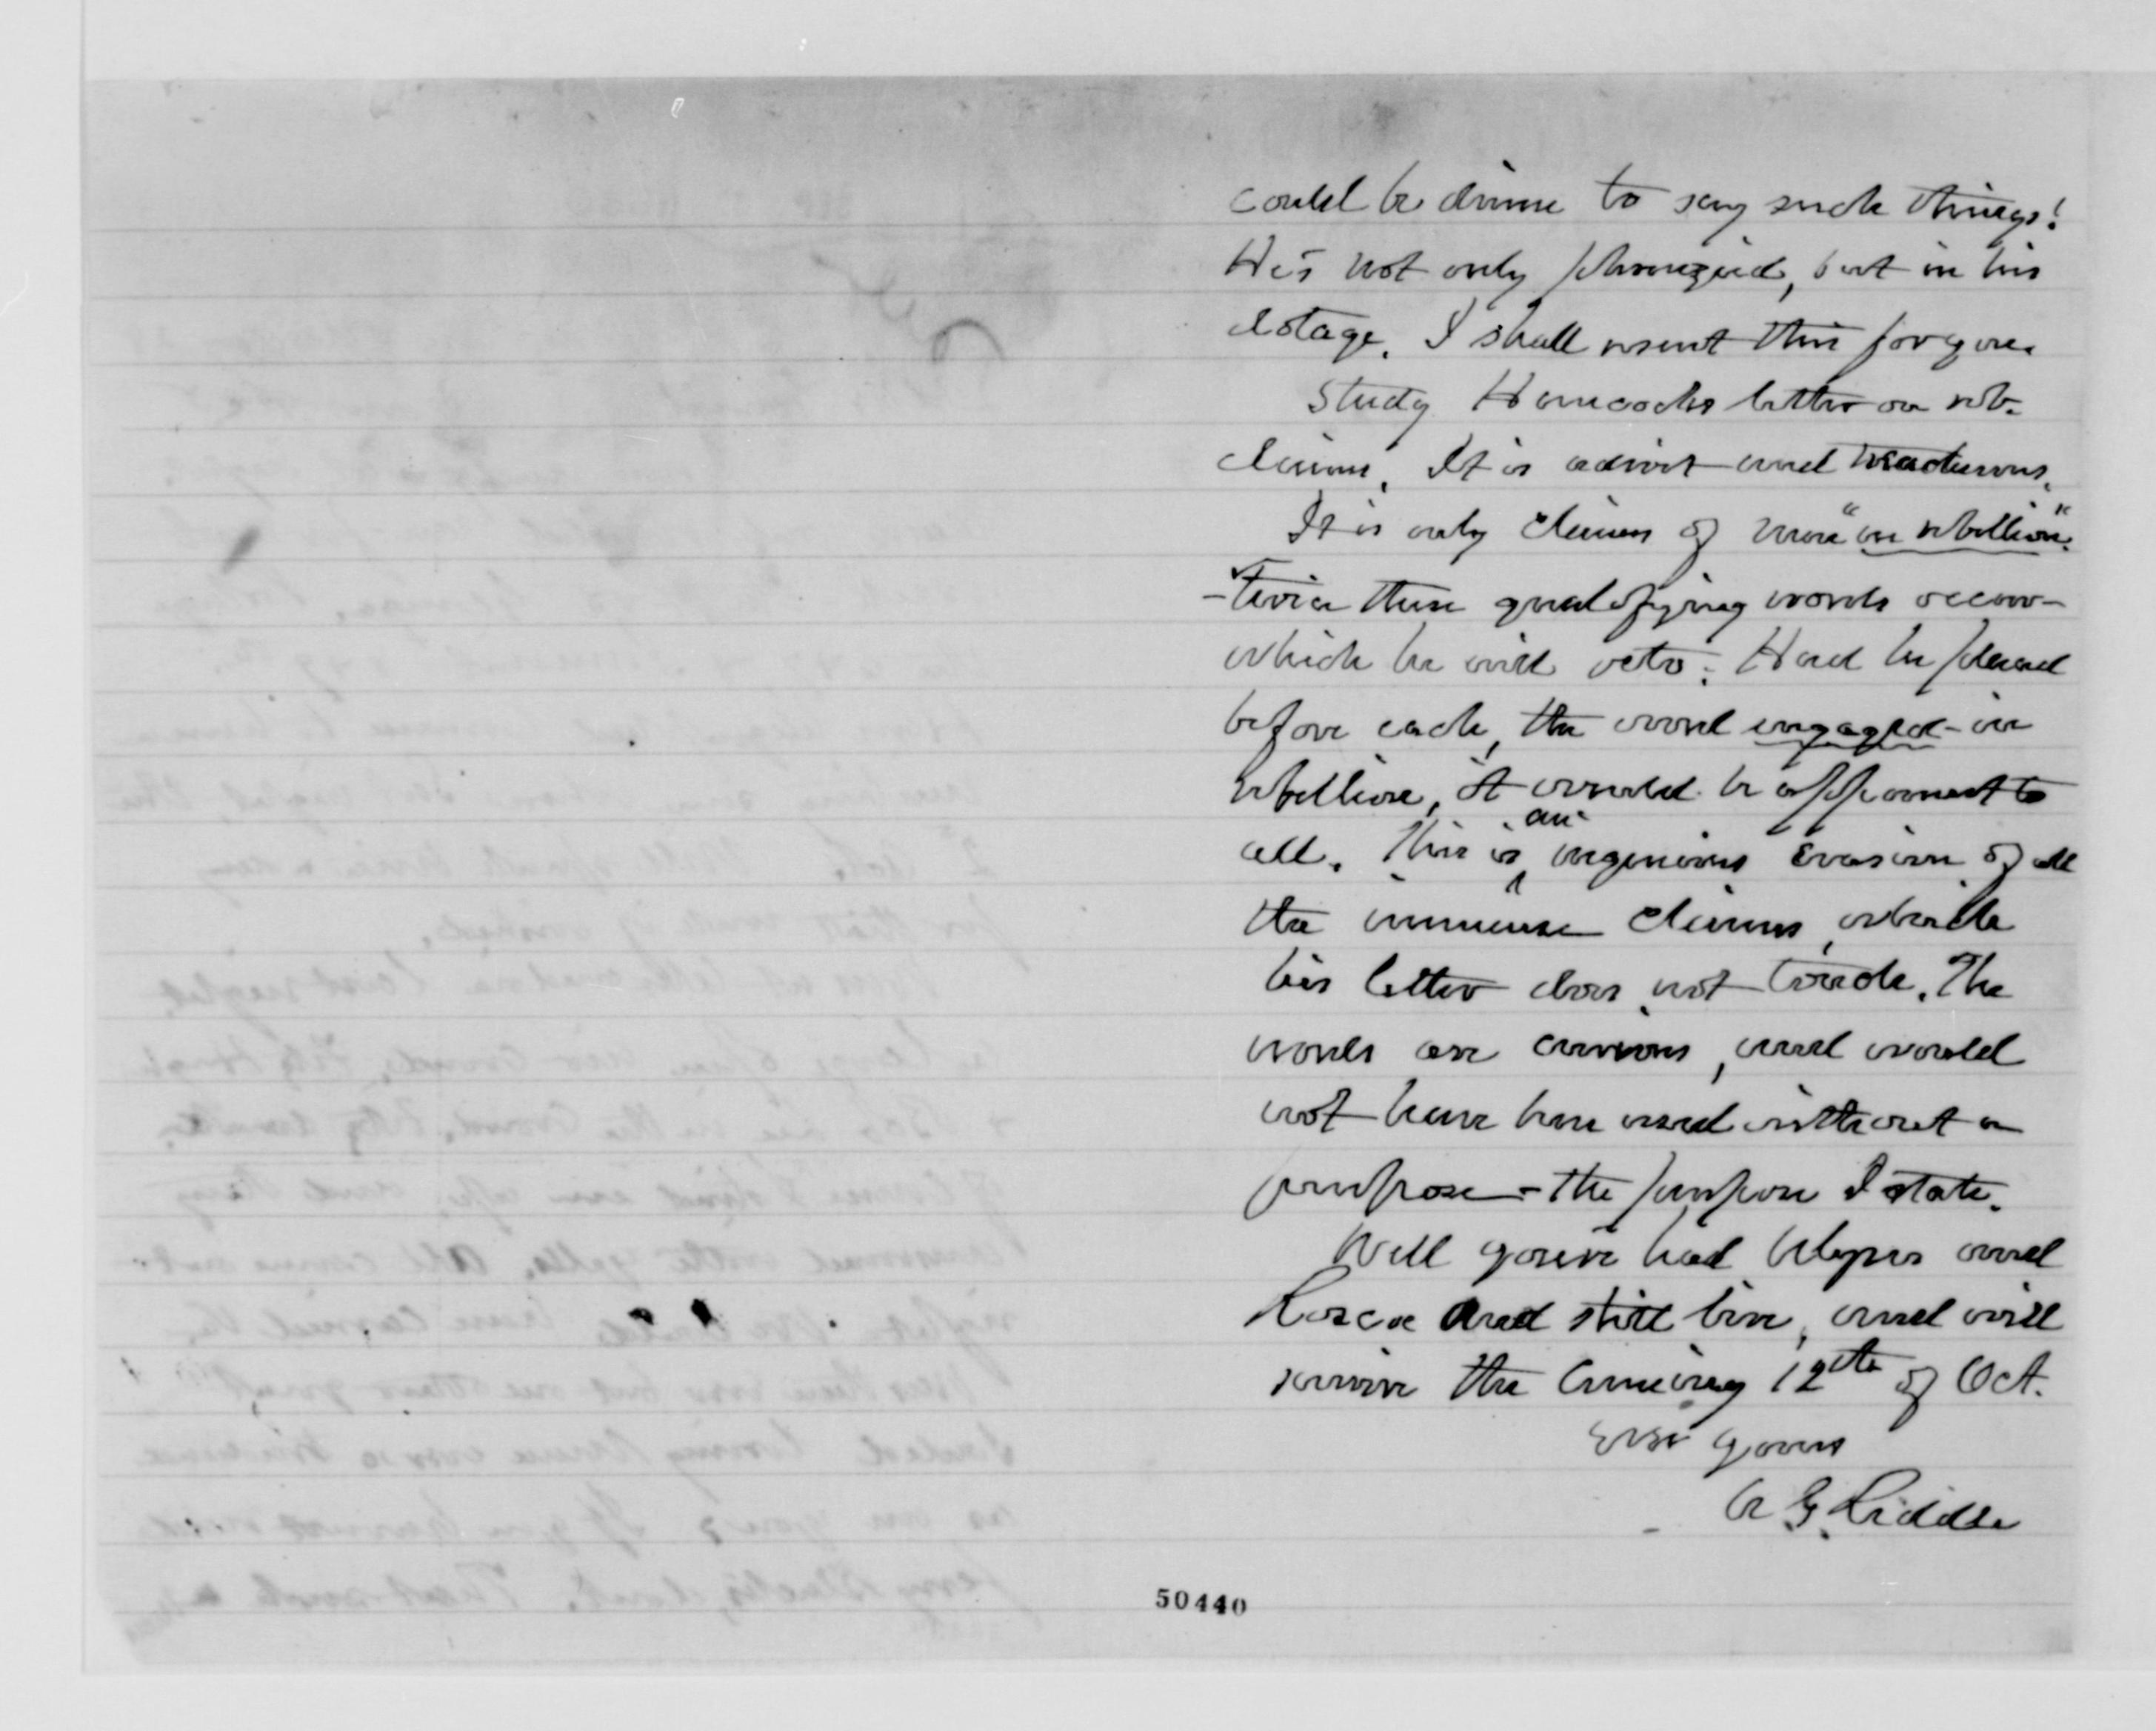 could be driven to say such things!
He's not only phrenzied, but in his
dotage. I shall resent this for you.
Study Hancocks letter on reb.
claims. It is adroit and treacherous.
It is only claims of men "in rebellion".
- Twice these qualifying words occur -
which he will veto. Had he placed
before each, the word engaged - in
rebellion, it would be apparent to
all. This is an ingenious evasion of all
the immense claims, which
his letter does not touch. The
words are curious, and would
not have been used without a
purpose - the purpose I state.
Well you've had Ulysses and
Roscoe and still live, and will
survive the coming 12th of Oct.
ever yours
A G Riddle
50440